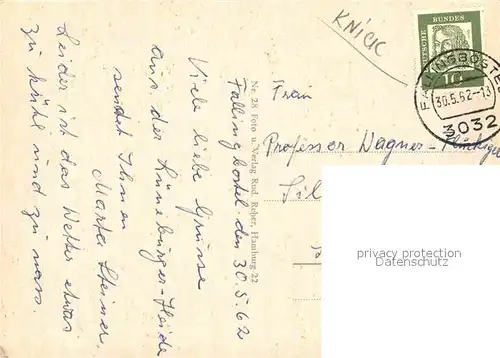 Fallingbostel den 30.5.62
Viele liebe Grüsse
aus der Lüneburger-Heide
sendet Ihnen
Marta Steiner.
Leider ist das Wetter etwas
zu kühl und zu nass.
Nr. 28 Foto u. Verlag Rud. Reher, Hamburg-22
KNICK
DEUTSCHE BUNDES
10
FALLINGBOSTEL
30.5.62-13
3032
Frau
Professor Wagner-
privacy protection
Datenschutz